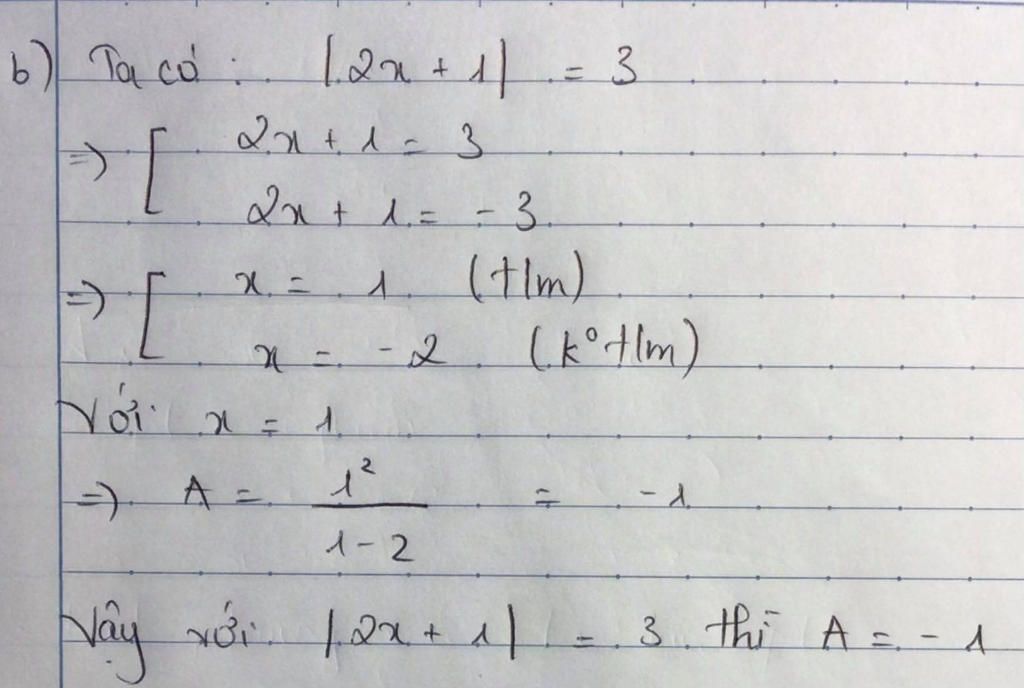 b) Ta có: |2x + 1| = 3
=> [ 2x + 1 = 3
2x + 1 = -3
=> [ x = 1 (tlm)
x = -2 (k° tlm)
Với x = 1
=> A = 1² / 1 - 2 = -1
Vậy với |2x + 1| = 3 thì A = -1